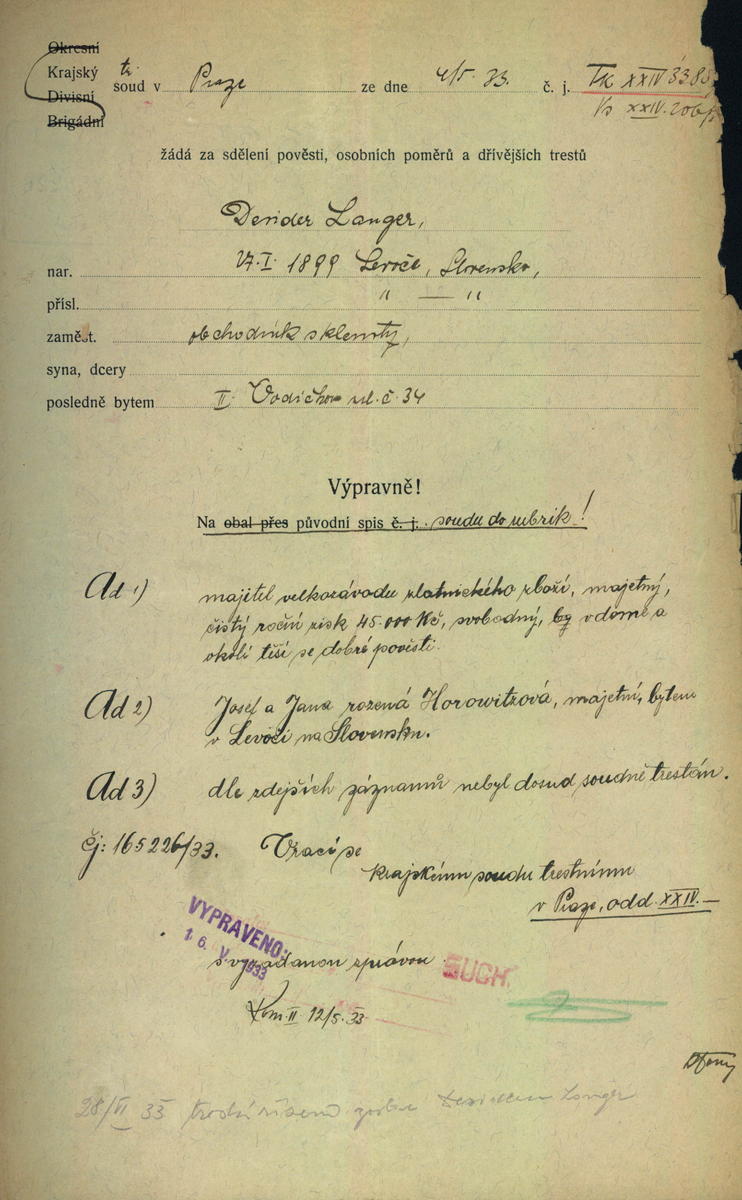 Okresní
Krajský
Divisní
Brigádní
tr. soud v Praze ze dne 4/5. 33. č. j. Tk XXIV 3385
Vs XXIV. 206/
žádá za sdělení pověsti, osobních poměrů a dřívějších trestů
Desider Langer,
nar. 27. I. 1899 Levoče, Slovensko,
přísl. " — "
zaměst. obchodník s klenoty,
syna, dcery
posledně bytem II. Vodičkova ul. č. 34
Výpravně!
Na obal přes původní spis č. j. soudu do rubrik!
Ad 1) majitel velkozávodu zlatnického zboží, majetný,
čistý roční zisk 45.000 Kč, svobodný, by v domě a
okolí těší se dobré pověsti.
Ad 2) Josef a Jana rozená Horowitzová, majetní, bytem
v Levoči na Slovensku.
Ad 3) dle zdejších záznamů nebyl dosud soudně trestán.
Čj: 165226/33. Vrací se
krajskému soudu trestnímu
v Praze, odd. XXIV. —
VYPRAVENO:
16. V. 1933
s vyžádanou zprávou.
SUCH.
Kom. II. 12/5. 33.
28/VI 33 trestní řízení Desider Langer